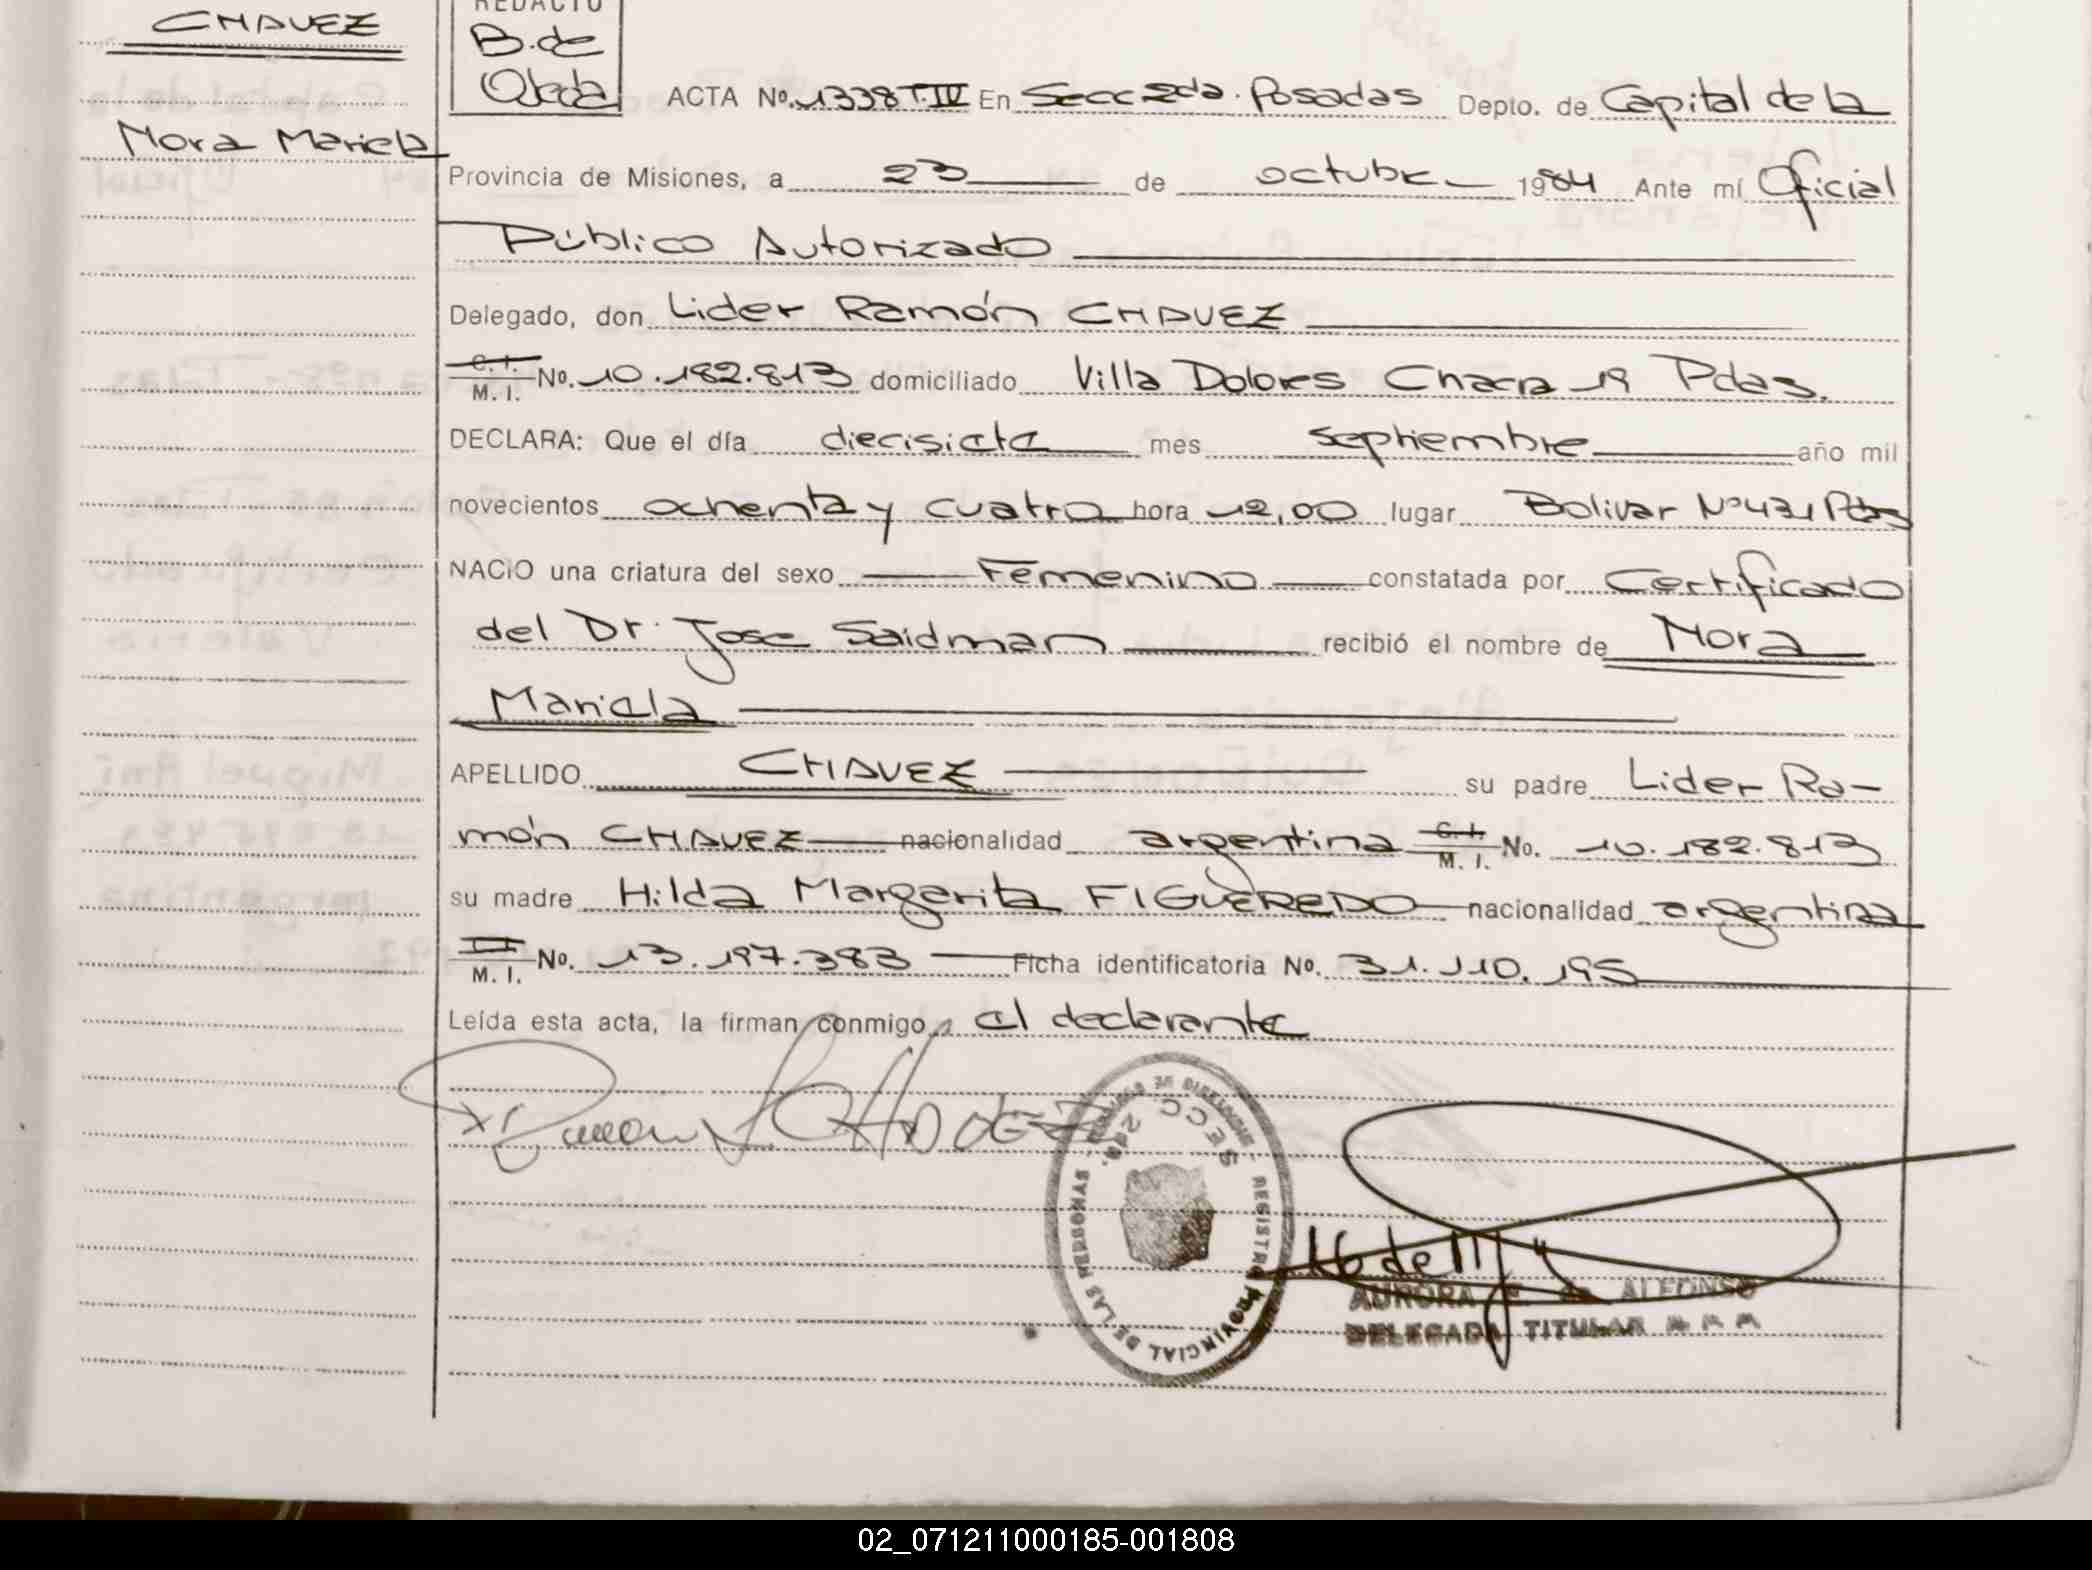 CHAVEZ
Nora Mariela
REDACTO
B. de
Ojeda
ACTA Nº. 1338 T. IV En Secc 2da. Posadas Depto. de Capital de la
Provincia de Misiones, a 23 de octubre 1984 Ante mí Oficial
Público Autorizado
Delegado, don Lider Ramón CHAVEZ
C. I.
M. I. No. 10.182.813 domiciliado Villa Dolores Chacra 19 Pdas.
DECLARA: Que el día diecisiete mes septiembre año mil
novecientos ochenta y cuatro hora 12,00 lugar Bolivar Nº 431 Pdas
NACIO una criatura del sexo Femenino constatada por Certificado
del Dr. Jose Saidman recibió el nombre de Nora
Mariela
APELLIDO CHAVEZ su padre Lider Ra-
món CHAVEZ nacionalidad argentina C. I.
M. I. No. 10.182.813
su madre Hilda Margarita FIGUEREDO nacionalidad argentina
M. I. No. 13.197.383 Ficha identificatoria No. 31.110.195
Leída esta acta, la firman conmigo, el declarante
Ramon CHAVEZ
SECC 2da.
REGISTRO PROVINCIAL DE LAS PERSONAS
AURORA de ALFONSO
DELEGADA TITULAR
02_071211000185-001808